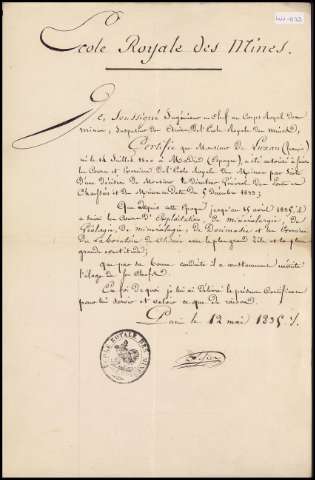 Ecole Royale des Mines.
Je, Soussigné Ingénieur en Chef au Corps Royal des
mines, Inspecteur des Elèves de l'Ecole Royale des mines,
Certifie que Monsieur De Luxan
né le 14 Juillet à Madrid (Espagne), a été autorisé à suivre
les Cours et Exercices de l'Ecole Royale des Mines par suite
d'une Décision de Monsieur le Directeur Général des Ponts et
Chaussées et des Mines en date du 5 Décembre 1833;
Que depuis cette Epoque jusqu'au 15 avril 1835, il
a suivi les Cours d'Exploitation, de minéralurgie, de
Géologie, de minéralogie, de Docimasie et les Exercices
du Laboratoire de Chimie avec le plus grand zèle et la plus
grande exactitude;
que par sa bonne conduite il a constamment mérité
l'éloge de ses Chefs.
En foi de quoi je lui ai délivré le présent Certificat
pour lui servir et valoir ce que de raison.
Paris le 12 mai 1835
ECOLE ROYALE DES MINES